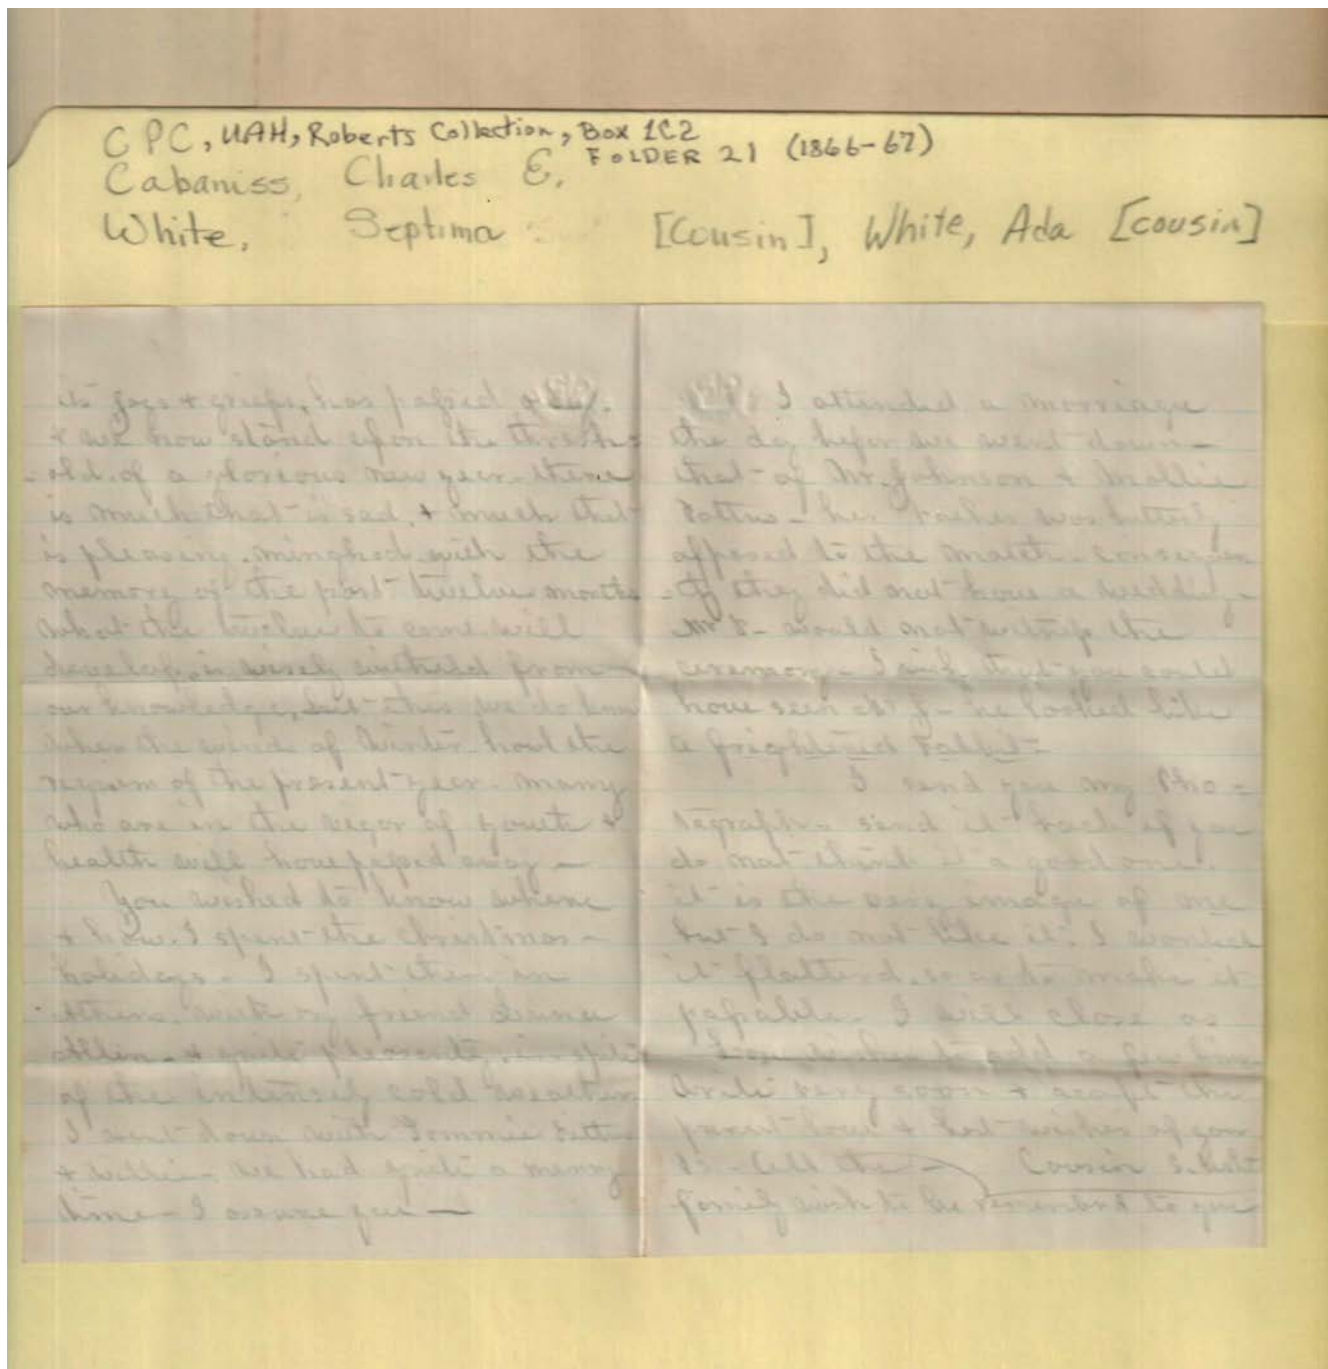 CPC, UAH, Roberts Collection, Box 1C2
FOLDER 21 (1866-67)
Cabaniss, Charles E.
White, Septima [Cousin], White, Ada [cousin]
its joys & griefs, has passed away.
& we now stand upon the thresh=
=old. of a glorious new year. there
is much that is sad, & much that
is pleasing. mingled with the
memory of the past twelve months
what the twelve to come will
develop, is wisely witheld from
our knowledge, but this we do know
when the winds of Winter howl the
requiem of the present year. many
who are in the vigor of youth &
health will have passed away —
You wished to know where
& how. I spent the Christmas -
holidays - I spent them in
Athens. with my friend
& quite pleasantly, in spite
of the intensely cold weather
I went down with Tommie
& Willie - we had quite a merry
time - I assure you —
I attended a marriage
the day befor we went down —
that of Mr. Johnson & Mollie
her Father was bitterly
opposed to the match - consequen
-tly they did not have a wedding -
would not witness the
ceremony - I wish that you could
have seen Mr J - he looked like
a frightened rabbit -
I send you my Pho =
tograph - send it back if you
do not think it a good one.
it is the very image of me
but I do not like it. I wanted
it flatterd, so as to make it
passable - I will close as
wishes to add a few lines
Write very soon & accept the
love & best wishes of your
All the — Cousin
family wish to be rememberd to you